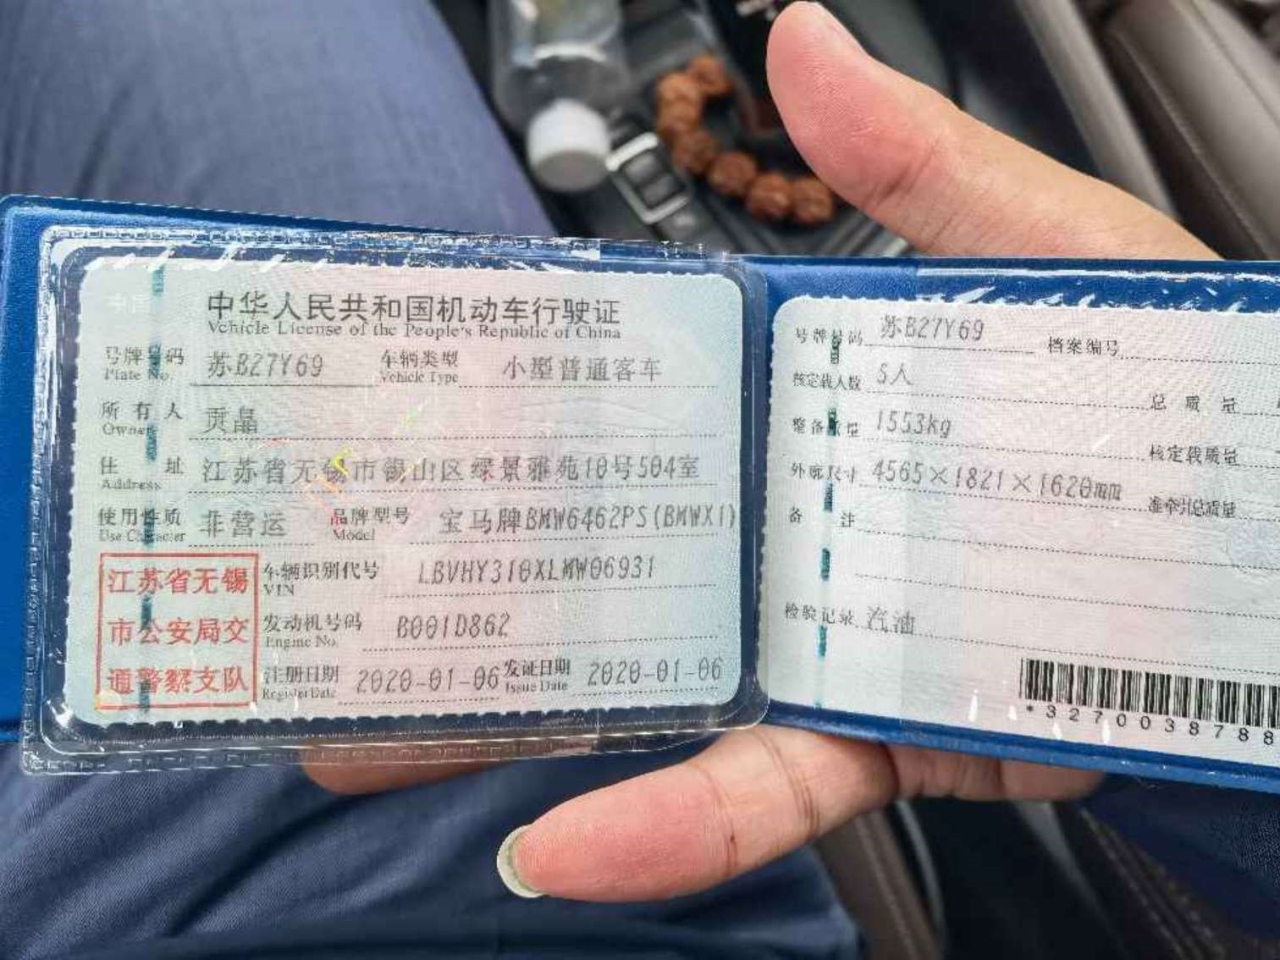 中华人民共和国机动车行驶证
Vehicle License of the People's Republic of China
号牌号码 苏B27Y69 车辆类型 小型普通客车
Plate No. Vehicle Type
所有人 贡晶
Owner
住址 江苏省无锡市锡山区绿景雅苑10号504室
Address
使用性质 非营运 品牌型号 宝马牌BMW6462PS(BMWX1)
Use Character Model
江苏省无锡
市公安局交
通警察支队
车辆识别代号 LBVHY310XLMW06931
VIN
发动机号码 B001D862
Engine No.
注册日期 2020-01-06 发证日期 2020-01-06
Register Date Issue Date
号牌号码 苏B27Y69 档案编号
核定载人数 5人 总质量
整备质量 1553kg 核定载质量
外廓尺寸 4565×1821×1620mm 准牵引总质量
备注
检验记录 汽油
*3270038788